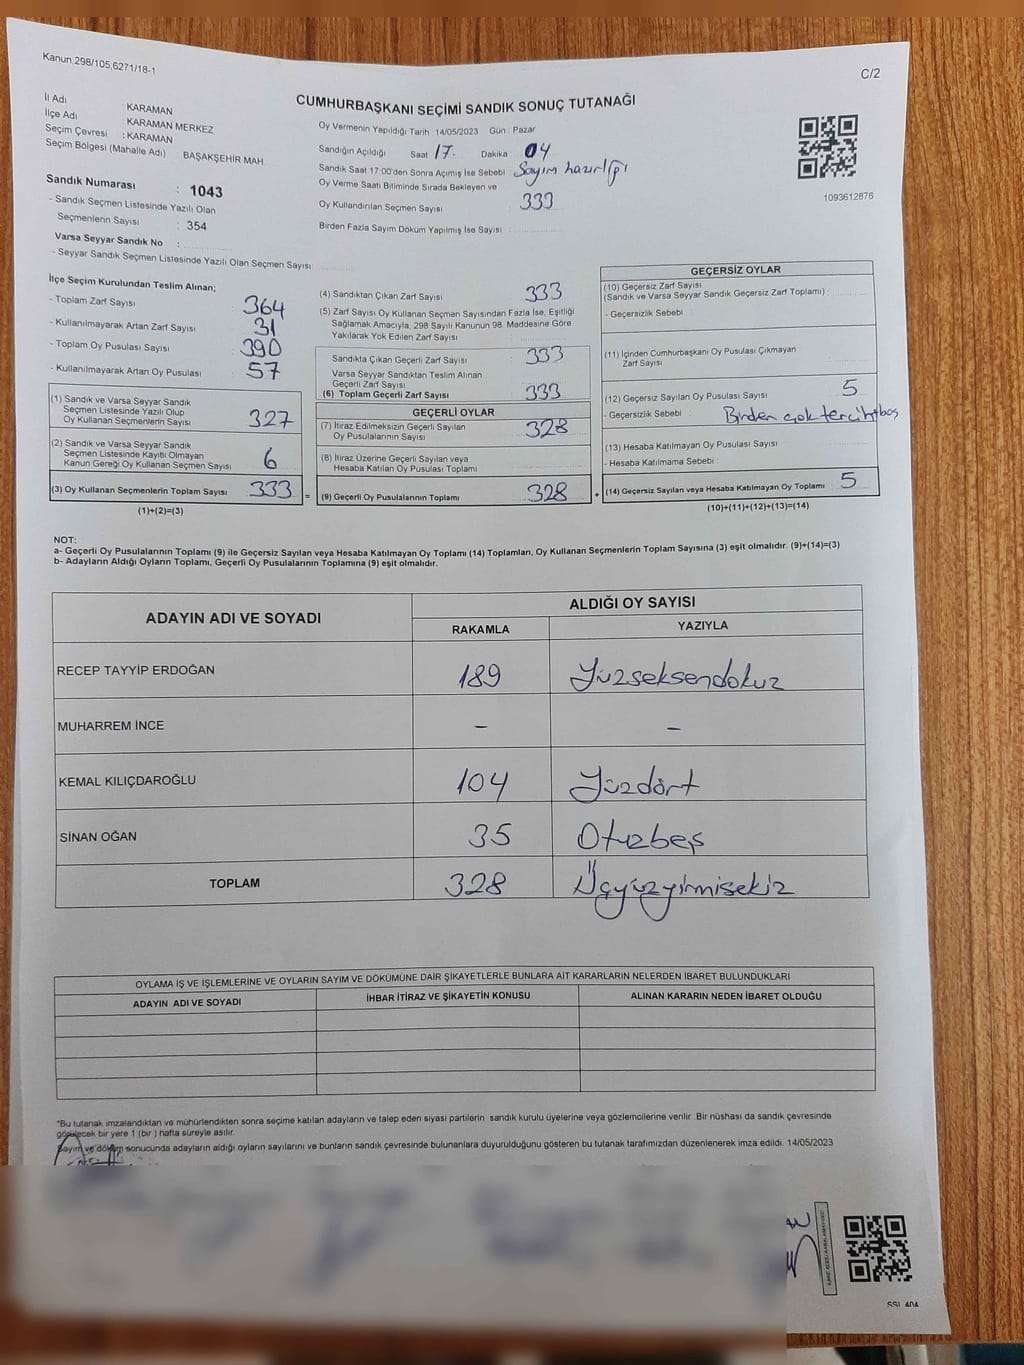 Kanun 298/105,6271/18-1
C/2
CUMHURBAŞKANI SEÇİMİ SANDIK SONUÇ TUTANAĞI
İl Adı : KARAMAN
İlçe Adı : KARAMAN MERKEZ
Seçim Çevresi : KARAMAN
Seçim Bölgesi (Mahalle Adı) BAŞAKŞEHİR MAH
Sandık Numarası : 1043
- Sandık Seçmen Listesinde Yazılı Olan
Seçmenlerin Sayısı : 354
Varsa Seyyar Sandık No :
- Seyyar Sandık Seçmen Listesinde Yazılı Olan Seçmen Sayısı
Oy Vermenin Yapıldığı Tarih : 14/05/2023 Gün : Pazar
Sandığın Açıldığı Saat 17. Dakika 04
Sandık Saat 17.00'den Sonra Açımış İse Sebebi : Sayım hazırlığı
Oy Verme Saati Bitiminde Sırada Bekleyen ve
Oy Kullandırılan Seçmen Sayısı : 333
Birden Fazla Sayım Döküm Yapılmış İse Sayısı :
1093612876
İlçe Seçim Kurulundan Teslim Alınan;
- Toplam Zarf Sayısı : 364
- Kullanılmayarak Artan Zarf Sayısı : 31
- Toplam Oy Pusulası Sayısı : 390
- Kullanılmayarak Artan Oy Pusulası : 57
(1) Sandık ve Varsa Seyyar Sandık
Seçmen Listesinde Yazılı Olup
Oy Kullanan Seçmenlerin Sayısı : 327
(2) Sandık ve Varsa Seyyar Sandık
Seçmen Listesinde Kayıtlı Olmayan
Kanun Gereği Oy Kullanan Seçmen Sayısı : 6
(3) Oy Kullanan Seçmenlerin Toplam Sayısı : 333 =
(1)+(2)=(3)
(4) Sandıktan Çıkan Zarf Sayısı : 333
(5) Zarf Sayısı Oy Kullanan Seçmen Sayısından Fazla İse, Eşitliği
Sağlamak Amacıyla, 298 Sayılı Kanunun 98. Maddesine Göre
Yakılarak Yok Edilen Zarf Sayısı :
Sandıkta Çıkan Geçerli Zarf Sayısı : 333
Varsa Seyyar Sandıktan Teslim Alınan
Geçerli Zarf Sayısı :
(6) Toplam Geçerli Zarf Sayısı : 333
GEÇERLİ OYLAR
(7) İtiraz Edilmeksizin Geçerli Sayılan
Oy Pusulalarının Sayısı : 328
(8) İtiraz Üzerine Geçerli Sayılan veya
Hesaba Katılan Oy Pusulası Toplamı :
(9) Geçerli Oy Pusulalarının Toplamı : 328 +
GEÇERSİZ OYLAR
(10) Geçersiz Zarf Sayısı
(Sandık ve Varsa Seyyar Sandık Geçersiz Zarf Toplamı) :
- Geçersizlik Sebebi :
(11) İçinden Cumhurbaşkanı Oy Pusulası Çıkmayan
Zarf Sayısı
(12) Geçersiz Sayılan Oy Pusulası Sayısı : 5
- Geçersizlik Sebebi : Birden çok tercih
(13) Hesaba Katılmayan Oy Pusulası Sayısı :
- Hesaba Katılmama Sebebi :
(14) Geçersiz Sayılan veya Hesaba Katılmayan Oy Toplamı : 5
(10)+(11)+(12)+(13)=(14)
NOT:
a- Geçerli Oy Pusulalarının Toplamı (9) ile Geçersiz Sayılan veya Hesaba Katılmayan Oy Toplamı (14) Toplamları, Oy Kullanan Seçmenlerin Toplam Sayısına (3) eşit olmalıdır. (9)+(14)=(3)
b- Adayların Aldığı Oyların Toplamı, Geçerli Oy Pusulalarının Toplamına (9) eşit olmalıdır.
ADAYIN ADI VE SOYADI ALDIĞI OY SAYISI
RAKAMLA YAZIYLA
RECEP TAYYİP ERDOĞAN 189 Yüzseksendokuz
MUHARREM İNCE - -
KEMAL KILIÇDAROĞLU 104 Yüzdört
SİNAN OĞAN 35 Otuzbeş
TOPLAM 328 Üçyüzyirmisekiz
OYLAMA İŞ VE İŞLEMLERİNE VE OYLARIN SAYIM VE DÖKÜMÜNE DAİR ŞİKAYETLERLE BUNLARA AİT KARARLARIN NELERDEN İBARET BULUNDUKLARI
ADAYIN ADI VE SOYADI İHBAR İTİRAZ VE ŞİKAYETİN KONUSU ALINAN KARARIN NEDEN İBARET OLDUĞU
*Bu tutanak imzalandıktan ve mühürlendikten sonra seçime katılan adayların ve talep eden siyasi partilerin sandık kurulu üyelerine veya gözlemcilerine verilir. Bir nüshası da sandık çevresinde
görülecek bir yere 1 (bir ) hafta süreyle asılır.
Sayım ve döküm sonucunda adayların aldığı oyların sayılarını ve bunların sandık çevresinde bulunanlara duyurulduğunu gösteren bu tutanak tarafımızdan düzenlenerek imza edildi. 14/05/2023